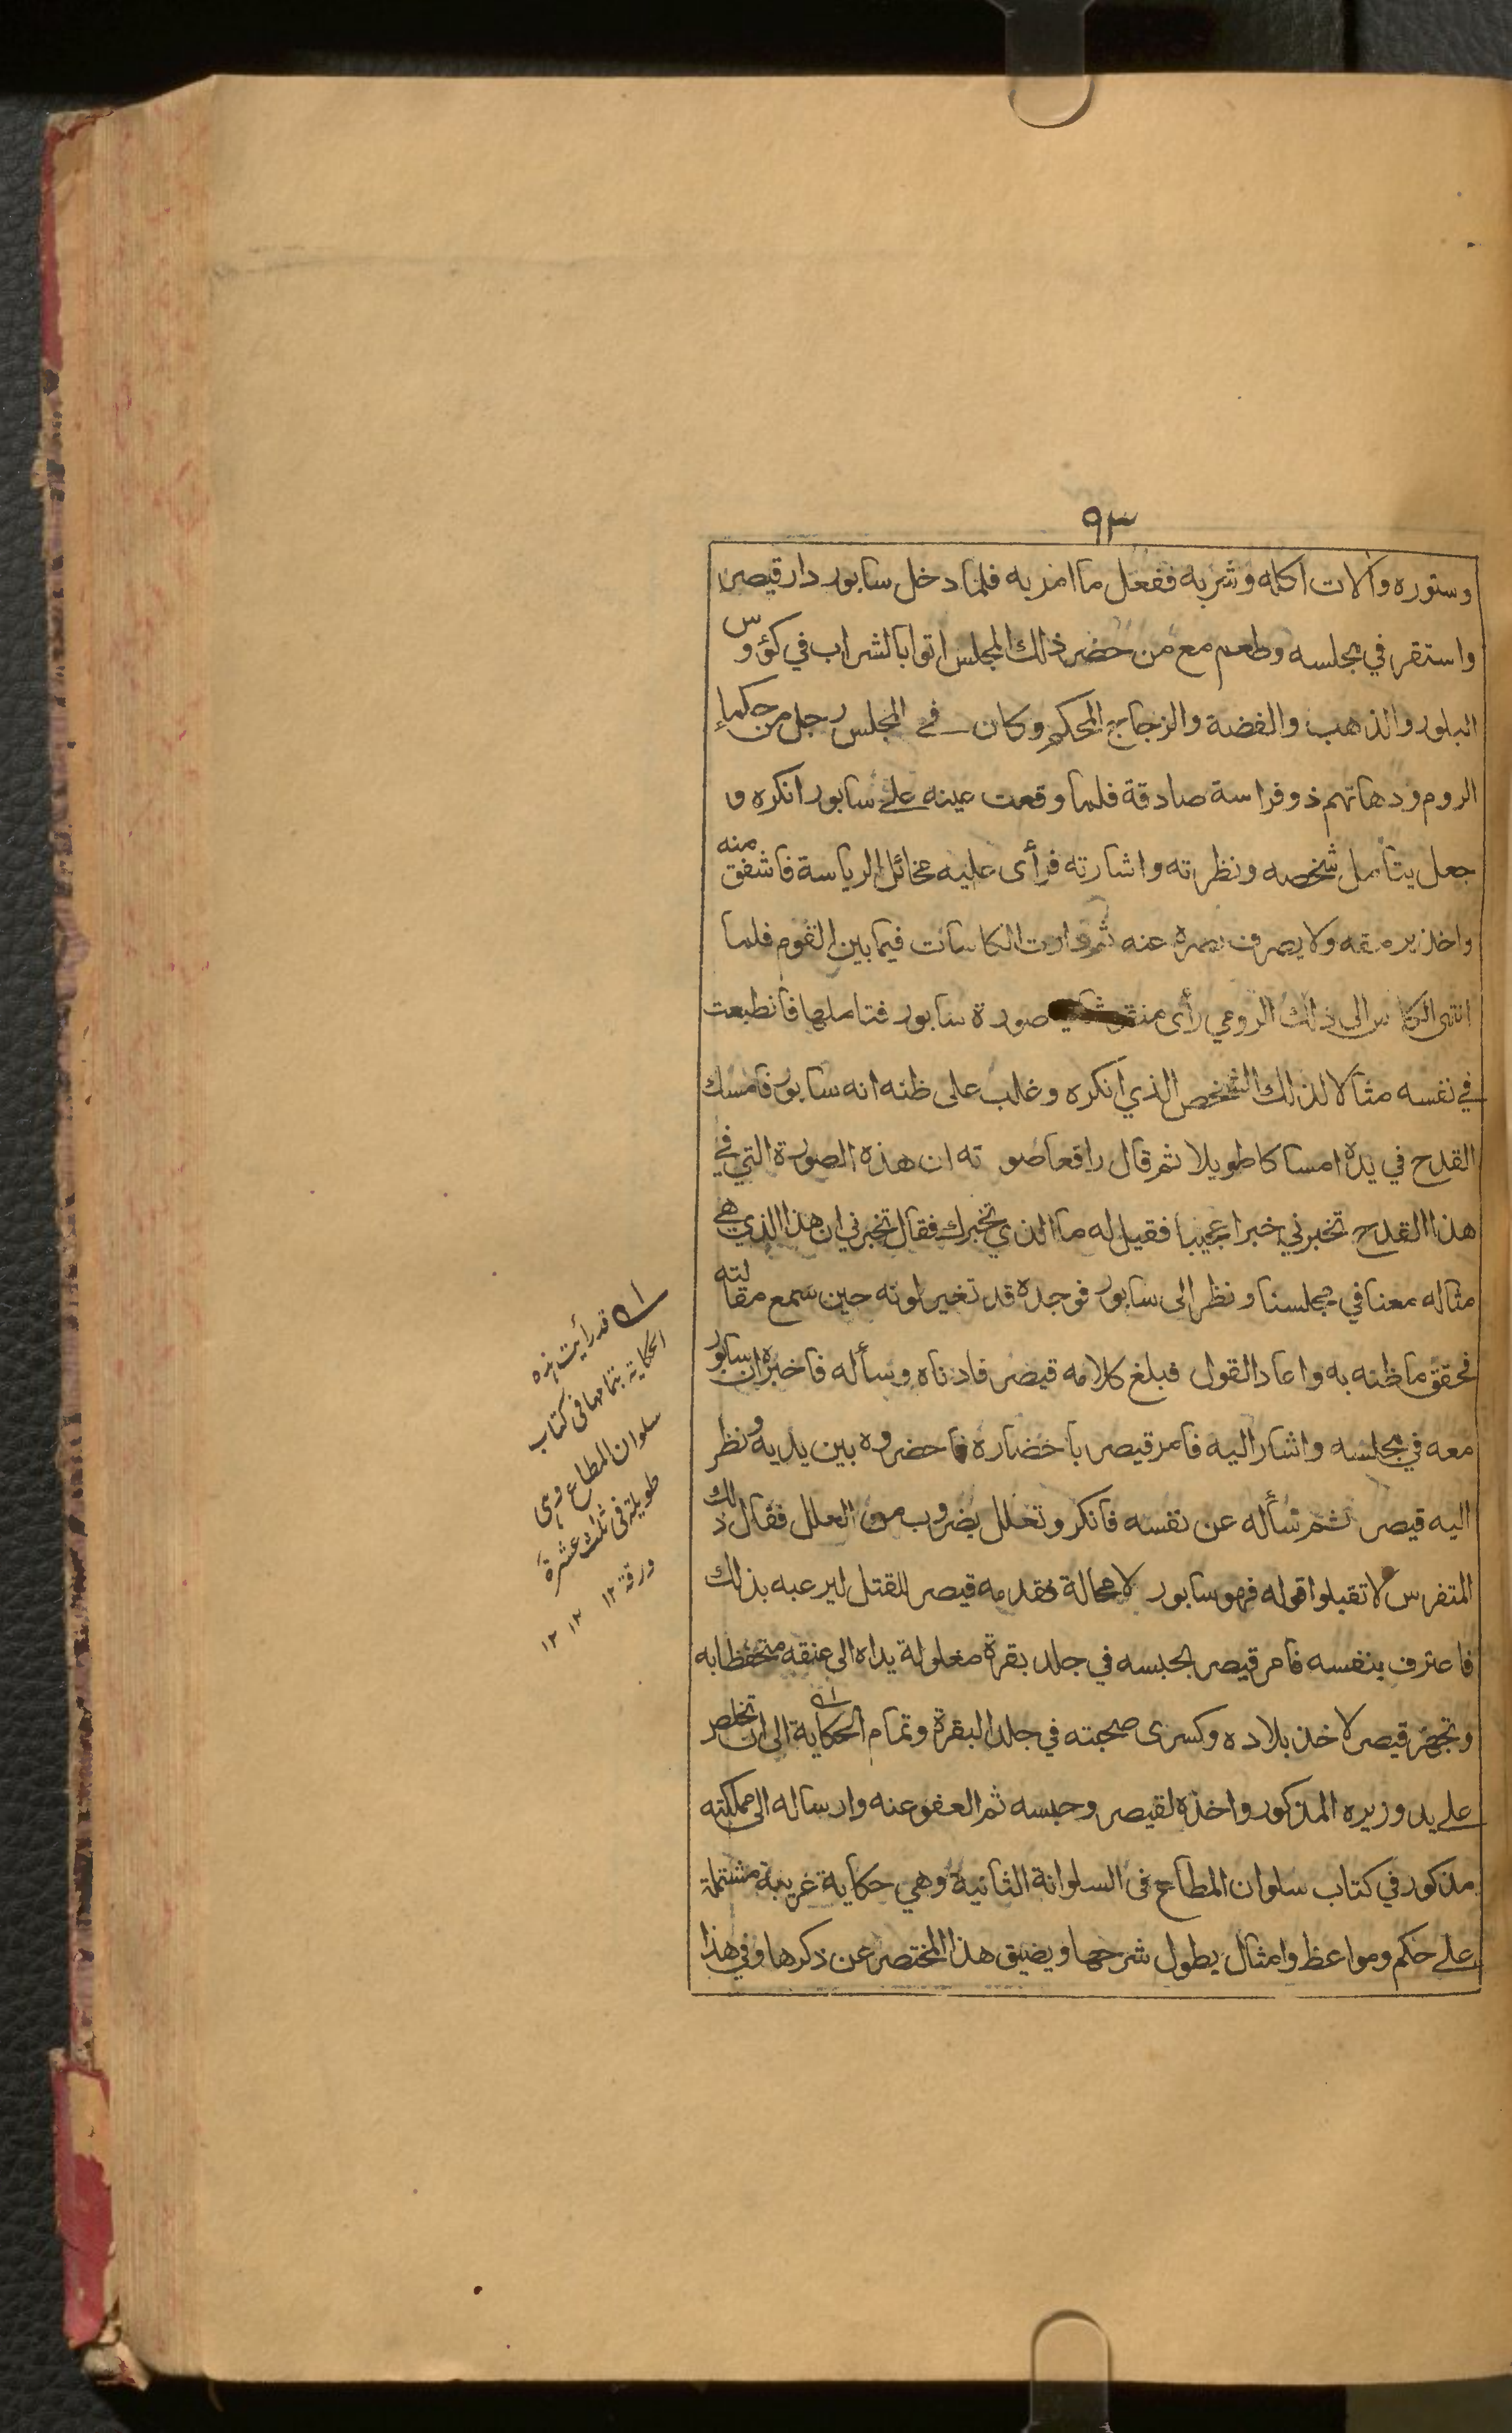 ٩٣
وستوره وآلات اكله وشربه ففعل ما امر به فلما دخل سابور دار قيصر
واستقر في مجلسه وطعم مع من حضر ذلك المجلس اتوا بالشراب في كؤوس
البلور والذهب والفضة والزجاج المحكم وكان في المجلس رجل من حكماء
الروم ودهاتهم ذو فراسة صادقة فلما وقعت عينه على سابور انكره و
جعل يتأمل شخصه ونظراته واشارته فرأى عليه مخائل الرياسة فاشفق منه
واخذ يرمقه ولا يصرف بصره عنه ثم دارت الكاسات فيما بين القوم فلما
انتهى الكاس الى ذلك الرومي رأى منقوشا صورة سابور فتاملها فانطبعت
في نفسه مثالا لذلك الشخص الذي انكره وغلب على ظنه انه سابور فامسك
القدح في يده امساكا طويلا ثم قال رافعا صوته ان هذه الصورة التي في
هذا القدح تخبرني خبرا عجيبا فقيل له ما الذي تخبرك فقال تخبرني ان هذا الذي هي
مثاله معنا في مجلسنا ونظر الى سابور فوجده قد تغير لونه حين سمع مقالته
فحقق ما ظنه به واعاد القول فبلغ كلامه قيصر فادناه وسأله فاخبره ان سابور
معه في مجلسه واشار اليه فامر قيصر باخضاره فاحضروه بين يديه ونظر
اليه قيصر ثم سأله عن نفسه فانكر وتعلل بضروب من العلل فقال ذلك
المتفرس لا تقبلوا قوله فهو سابور لا محالة فقدمه قيصر للقتل ليرعبه بذلك
فاعترف بنفسه فامر قيصر بحبسه في جلد بقرة مغلولة يداه الى عنقه متحفظا به
وتجهز قيصر لاخذ بلاده وكسرى صحبته في جلد البقرة وتمام الحكاية الى ان تخلص
على يد وزيره المذكور واخذه لقيصر وحبسه ثم العفو عنه وارساله الى مملكته
مذكور في كتاب سلوان المطاع فى السلوانة الثانية وهي حكاية غريبة مشتملة
على حكم ومواعظ وامثال يطول شرحها ويضيق هذا المختصر عن ذكرها وفي هذا
قد رأيت هذه
الحكاية بتمامها فى كتاب
سلوان المطاع وهى
طويلة فى ثلث عشرة
ورقة ١٢ ١٢ ١٢